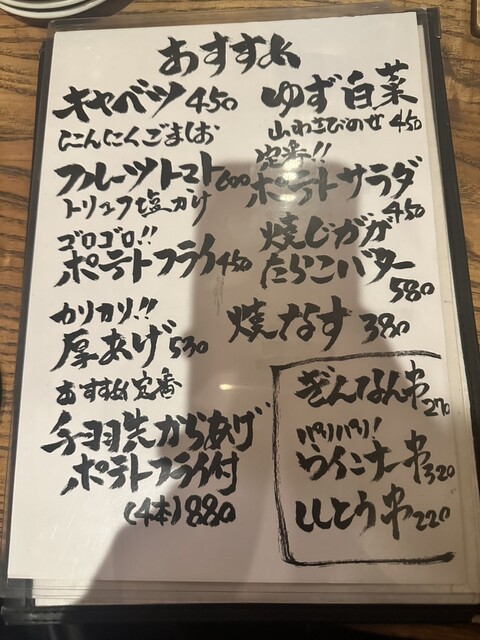 おすすめ
キャベツ 450
にんにくごましお
フルーツトマト 600
トリュフ塩かけ
ゴロゴロ!!
ポテトフライ 450
カリカリ!!
厚あげ 530
おすすめ定番
手羽先からあげ
ポテトフライ付
(4本) 880
ゆず白菜
山わさびのせ 450
定番!!
ポテトサラダ
450
焼じゃが
たらこバター
580
焼なす 380
ぎんなん串 270
パリパリ!
ウインナー串 320
ししとう串 220